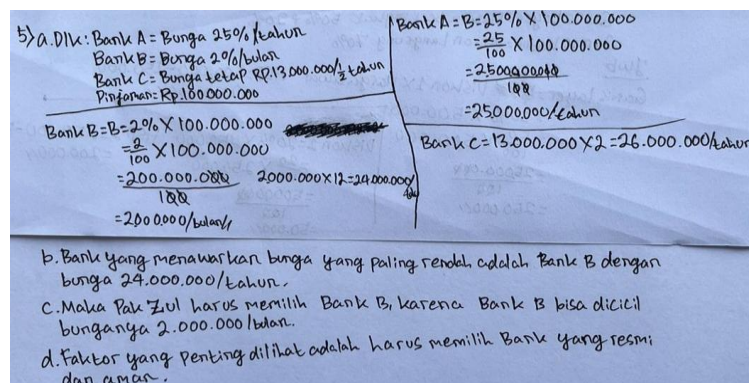 5) a. Dlk: Bank A = Bunga 25%/tahun
Bank B = Bunga 2%/bulan
Bank C = Bunga tetap Rp.13.000.000/½ tahun
Pinjaman = Rp.100.000.000
Bank B = B = 2% X 100.000.000
= 2/100 X 100.000.000
= 200.000.000
100
= 2000.000/bulan
2000.000 X 12 = 24.000.000/
Bank A = B = 25% X 100.000.000
= 25/100 X 100.000.000
= 2.500.000.000
100
= 25.000.000/tahun
Bank C = 13.000.000 X 2 = 26.000.000/tahun
b. Bank yang menawarkan bunga yang paling rendah adalah Bank B dengan
bunga 24.000.000/tahun.
C. Maka Pak Zul harus memilih Bank B, karena Bank B bisa dicicil
bunganya 2.000.000/bulan.
d. Faktor yang penting dilihat adalah harus memilih Bank yang resmi
dan aman.